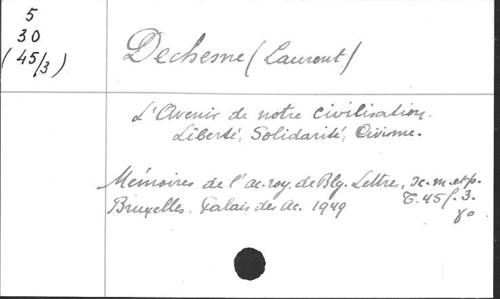 5
30
(45/3)
Dechesne (Laurent)
L'Avenir de notre civilisation.
Liberté, Solidarité, Civisme.
Mémoires de l'ac. roy. de Blg. Lettres, Sc. m. et p.
Bruxelles. Palais des Ac. 1949 T. 45 f. 3.
8o